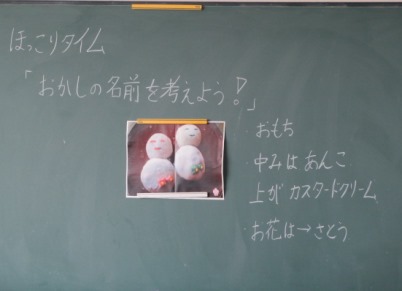 ほっこりタイム
「おかしの名前を考えよう!」
・おもち
・中みはあんこ
上がカスタードクリーム
・お花は→さとう